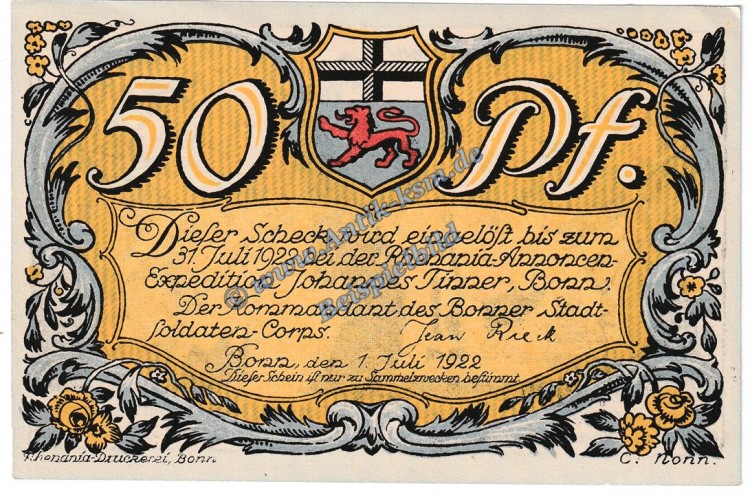 50 Pf.
Dieser Scheck wird eingelöst bis zum
31. Juli 1922 bei der Rhenania-Annoncen-
Expedition Johannes Tinner, Bonn.
Der Kommandant des Bonner Stadt-
soldaten-Corps. Jean Rieck
Bonn, den 1. Juli 1922
Dieser Schein ist nur zu Sammelzwecken bestimmt
Rhenania-Druckerei, Bonn
C. Nonn.
© www.Antik-ksm.de
Beispielbild